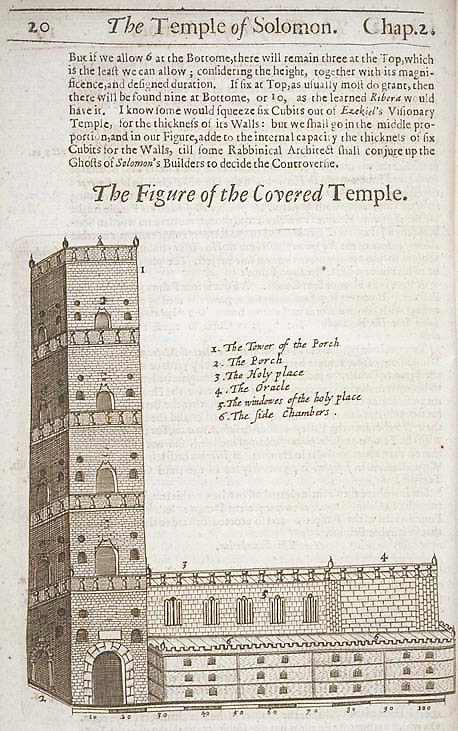 20 The Temple of Solomon. Chap.2.
But if we allow 6 at the Bottome,there will remain three at the Top,which
is the leaſt we can allow ; conſidering the height, together with its magni-
ficence,and deſigned duration. If ſix at Top,as uſually moſt do grant, then
there will be found nine at Bottome, or 10, as the learned Ribera would
have it. I know ſome would ſqueeze ſix Cubits out of Ezekiel's Viſionary
Temple, for the thickneſs of its Walls: but we ſhall go in the middle pro-
portion,and in our Figure,adde to the internal capacity the thickneſs of ſix
Cubits for the Walls, till ſome Rabbinical Architect ſhall conjure up the
Ghoſts of Solomon's Builders to decide the Controverſie.
The Figure of the Covered Temple.
1
1. The Tower of the Porch
2. The Porch
3 The Holy place
4. The Oracle
5. The windowes of the holy place
6. The ſide Chambers.
3 4
5
6 6
2
10 20 30 40 50 60 70 80 90 100